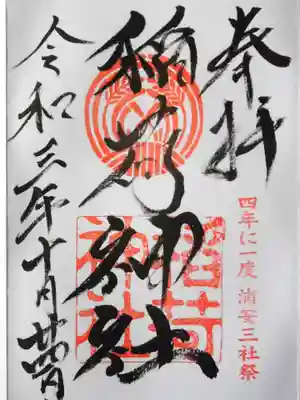 奉拝
四年に一度 浦安三社祭
稲荷神社
稲荷神社
令和三年十月廿四日